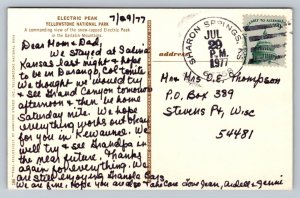 ELECTRIC PEAK
YELLOWSTONE NATIONAL PARK
A commanding view of the snow-capped Electric Peak
in the Gallatin Mountains.
7/29/77
Dear Mom & Dad,
We stayed at Salina
Kansas last night & hope
to be in Durango, Col. tonite.
We thought we would try
to see Grand Canyon tomorrow
afternoon & then be home
Saturday nite. We hope
everything works out okay
for you in Kewaunee. We
will try & see Grandpa in
the near future. Thanks
again for everything. We
are still enjoying Granola Bars.
We are fine, Hope you are also Take Care Love Jean,
address
SHARON SPRINGS, KS
JUL
29
P.M.
1977
Mr & Mrs D.E. Thompson
P.O. Box 339
Stevens Pt, Wisc
54481